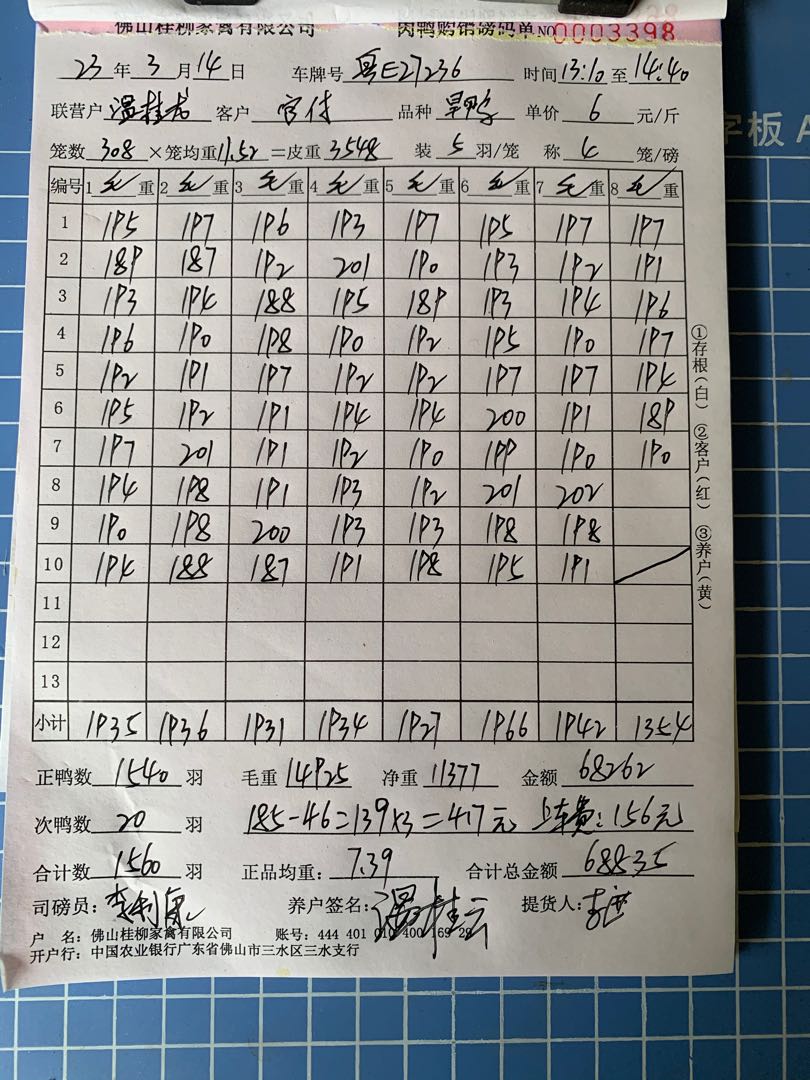 佛山桂柳家禽有限公司 肉鸭购销磅码单 NO0003398
23 年 3 月 14 日 车牌号 粤E27236 时间 13:10 至 14:40
联营户 温桂云 客户 官付 品种 单价 6 元/斤
笼数 308 ×笼均重 11.52 =皮重 3548 装 5 羽/笼 称 4 笼/磅
编号 1 毛 重 2 毛 重 3 毛 重 4 毛 重 5 毛 重 6 毛 重 7 毛 重 8 毛 重
1 195 197 196 193 197 195 197 197
2 189 187 192 201 190 193 192 191
3 193 194 188 195 189 193 194 196
4 196 190 198 190 192 195 190 197
5 192 191 197 192 192 197 197 194
6 195 192 191 194 194 200 191 189
7 197 201 191 192 190 199 190 190
8 194 198 191 193 192 201 202
9 190 198 200 193 193 198 198
10 194 188 187 191 198 195 191
11
12
13
小计 1935 1936 1931 1934 1927 1966 1942 1354
①存根(白) ②客户(红) ③养户(黄)
正鸭数 1540 羽 毛重 14925 净重 11377 金额 68262
次鸭数 20 羽 185-46=139×3=417元 上车费:156元
合计数 1560 羽 正品均重: 7.39 合计总金额 68835
司磅员: 养户签名: 温桂云 提货人:
户 名: 佛山桂柳家禽有限公司 账号: 444 401 010 400 169 29
开户行: 中国农业银行广东省佛山市三水区三水支行
字板 A